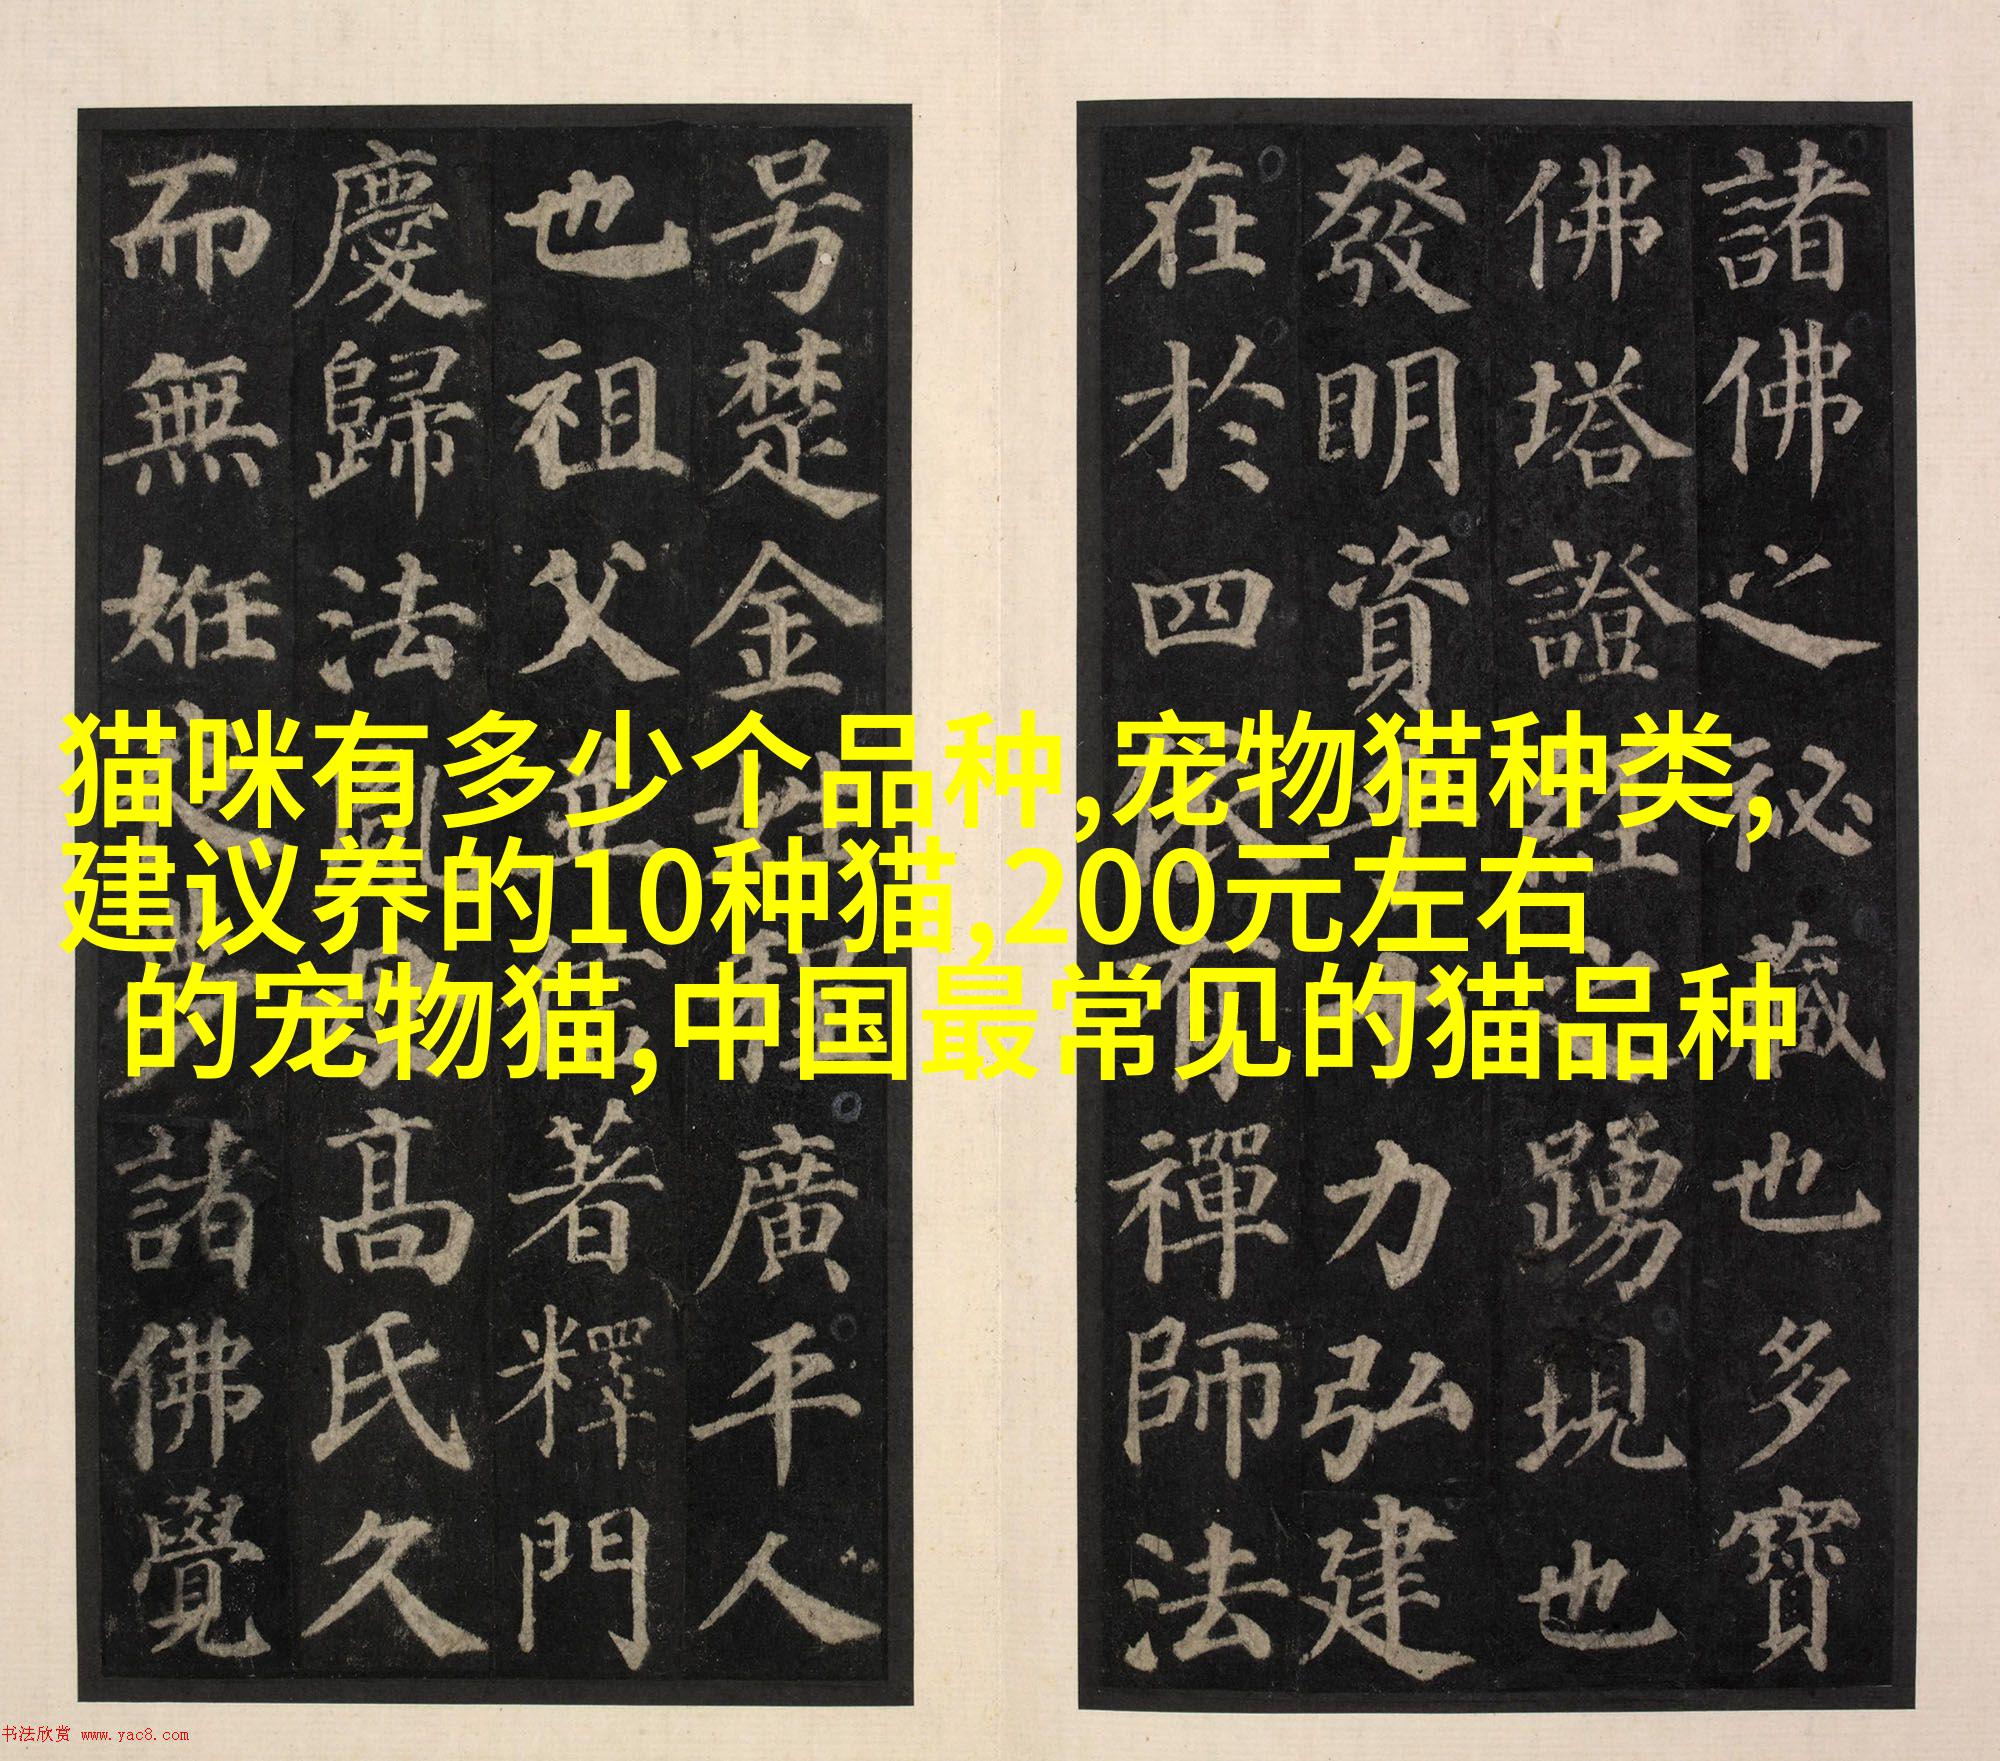 諸佛之祕藏也多寶
佛塔證經之踴現也
發明資乎十力弘建
在於四依有禪師法
号楚金姓程廣平人
也祖父並信著釋門
慶歸法胤母高氏久
而無姙夜夢諸佛覺
猫咪有多少个品种,宠物猫种类,
建议养的10种猫,200元左右
的宠物猫,中国最常见的猫品种
书法欣赏 www.yac8.com